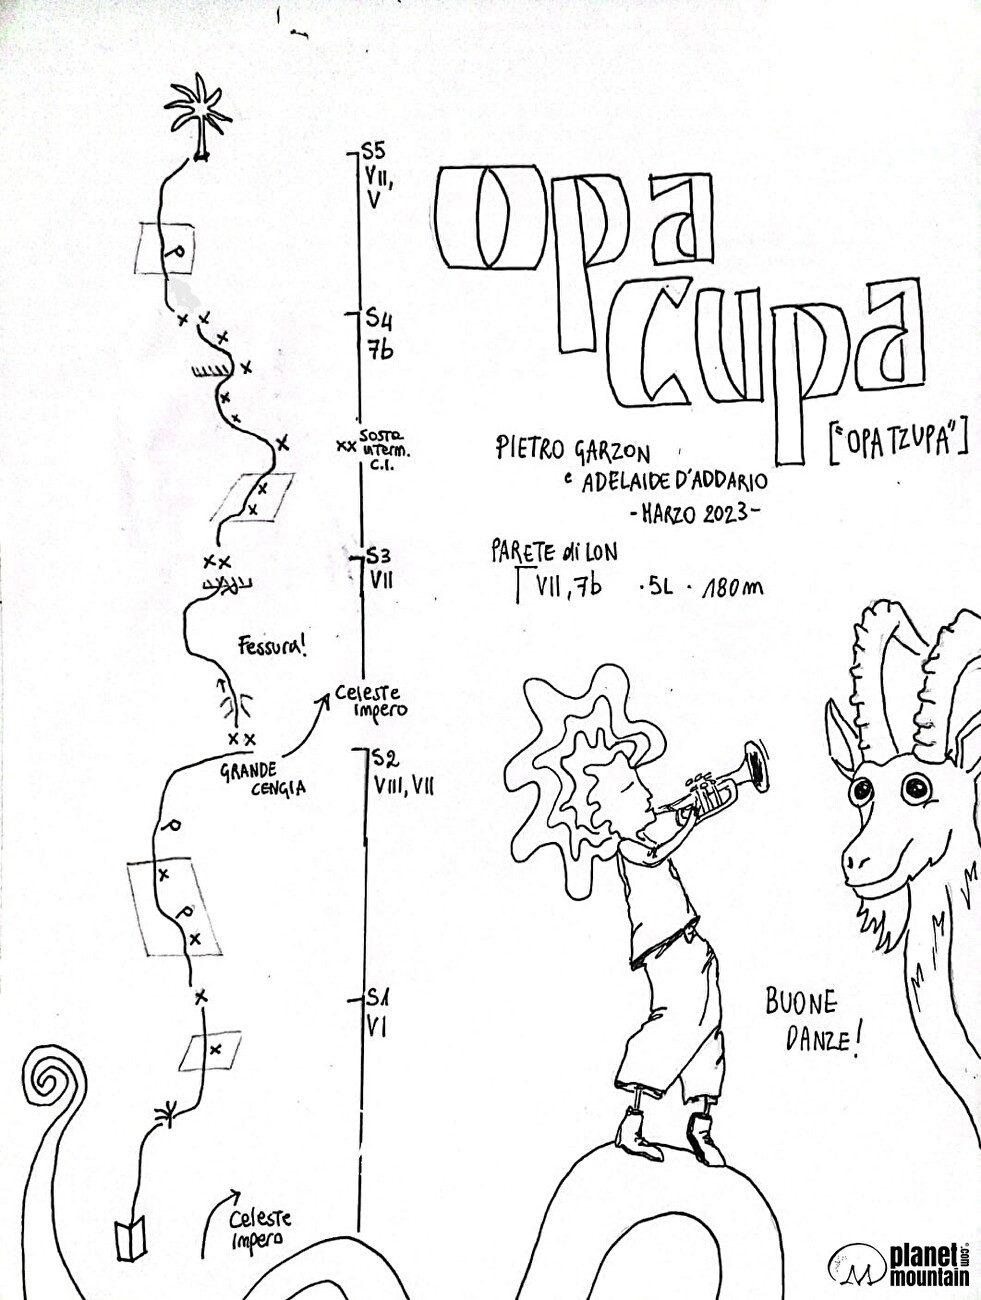 Opa
Cupa
["OPA TZUPA"]
PIETRO GARZON
e ADELAIDE D'ADDARIO
- MARZO 2023 -
PARETE di LON
VII, 7b · 5L · 180m
S5
VII,
V
S4
7b
XX Sosta
interm.
C.I.
S3
VII
Fessura!
Celeste
impero
GRANDE
CENGIA
S2
VIII, VII
S1
VI
Celeste
impero
BUONE
DANZE!
planet
mountain
.com